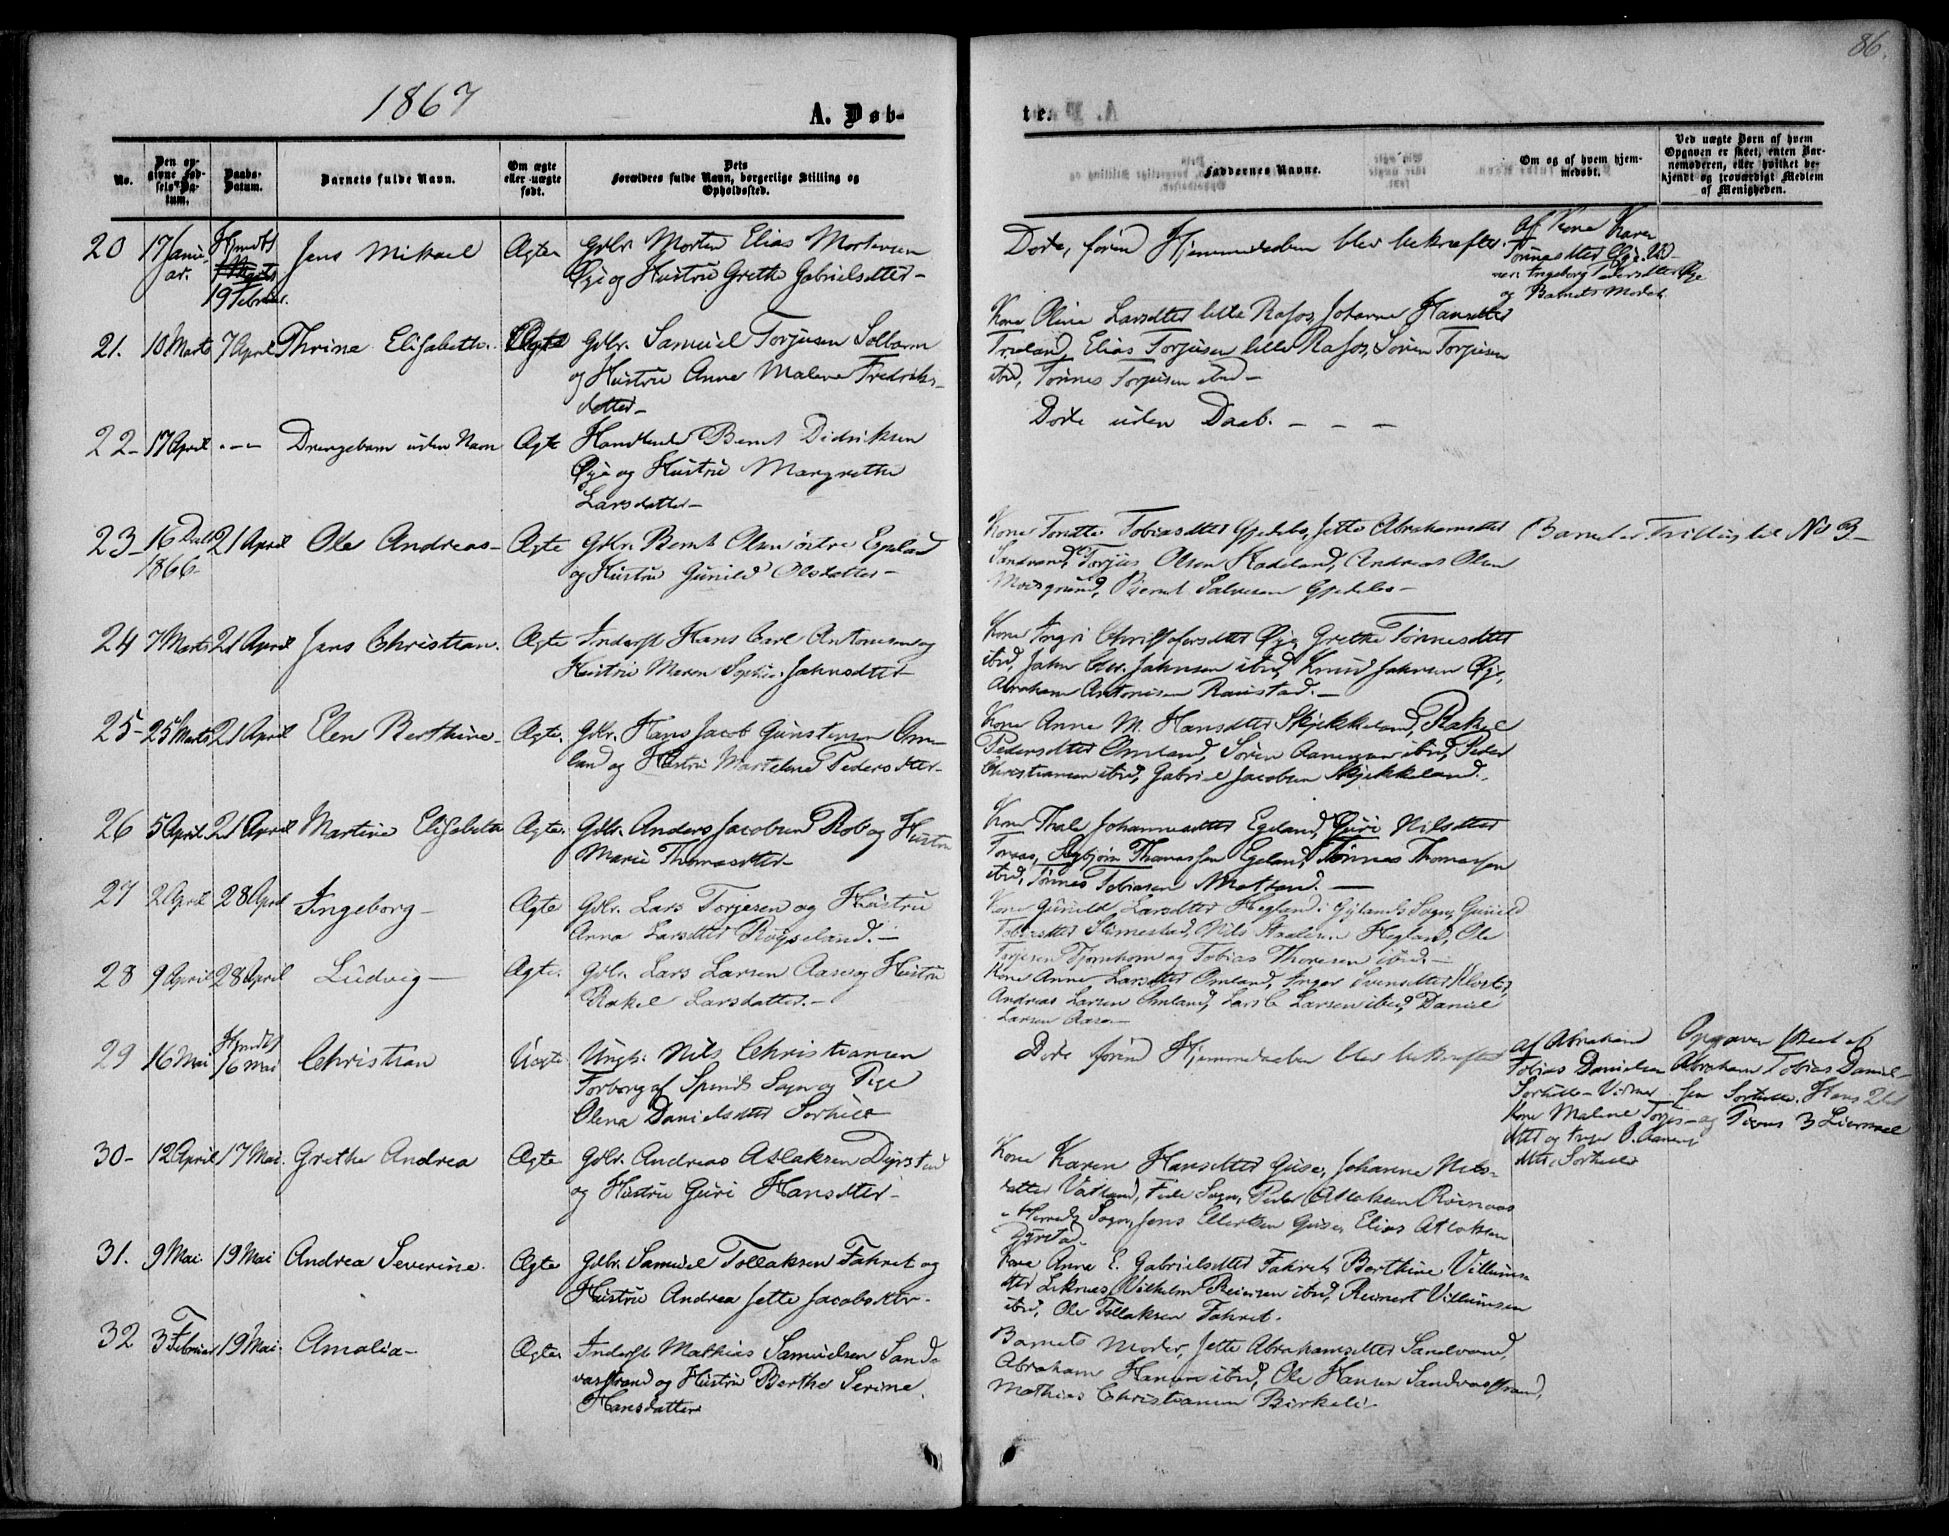 86.
1867
A. Døb-
te.
No.
Den opgivne Fødselsdatum.
Daabs-Datum.
Barnets fulde Navn.
Om ægte eller uægte født.
Dets Forældres fulde Navn, borgerlige Stilling og Opholdssted.
Faddernes Navne.
Om og af hvem hjemmedøbt.
Ved uægte Børn af hvem Opgaven er skeet, enten Barnemoderen, eller hvilket bekjendt og troværdigt Medlem af Menigheden.
20 17 Januar. Hjmdbt 19 Februar. Jens Mikael Ægte Gdbr. Morten Elias Mortensen
Øye og Hustru Grethe Gabrielsdtter-
Døde, førend Hjemmedaaben blev bekræftet.
af Kone Karen
Tønnesdtter Øye. Vid-
ner: Ingeborg Pedersdtter Øye
og Barnets Moder.
21. 10 Marts 7 April Thrina Elisabeth. Ægte Gdbr. Samuel Torjusen Solbarm
og Hustru Anne Malene Fredriks-
datter-
Kone Oline Larsdtter lille Rafos, Johanne Hansdtter
Træland, Elias Torjusen lille Rafos, Søren Torjusen
ibid, Tønnes Torjusen ibid-
22- 17 April Drengebarn uden Navn Ægte Handlende Bernt Didriksen
Øye og Hustru Margrethe
Larsdatter-
Døde uden Daab. - - -
23- 16 Decbr 1866- 21 April Ole Andreas- Ægte Gdbr. Bernt Olsen østre Egeland
og Hustru Gunild Olsdatter-
Kone Tonette Tobiasdtter Gjedebo, Jette Abrahamsdtter
Sandvand, Torjus Olsen Kadeland, Andreas Olsen
Moisgrund, Bernt Salvesen Gjedebo-
Barnet er Trilling til No 3-
24 7 Marts 21 April Jens Christian. Ægte Inderst Hans Carl Antonsen og
Hustru Maren Sophie Jahnsdtter
Kone Ingri Christofersdtter Øye, Grethe Tønnesdtter
ibid, Jahn Chr. Jahnsen ibid, Knud Jahnsen Øye,
Abraham Antonisen Raustad.-
25- 25 Marts 21 April Elen Berthine- Ægte. Gdbr. Hans Jacob Gunstensen Om-
land og Hustru Martelene Pedersdtter-
Kone Anne M. Hansdtter Skjekkeland, Rakel
Pedersdtter Omland, Søren Aanensen ibid, Peder
Christiansen ibid, Gabriel Jacobsen Skjekkeland.
26 5 April 21 April Martine Elisabeth Ægte. Gdbr. Anders Jacobsen Rob og Hustru
Marie Thomasdtter-
Kone Thale Johannesdtter Egeland, Guri Nilsdtter
Torsaas, Asbjørn Thomassen Egeland, Tønnes Thomassen
ibid, Tønnes Tobiasen Motland.-
27 2 April 28 April Ingeborg- Ægte Gdbr. Lars Torjesen og Hustru
Anna Larsdtter Røyseland.-
Kone Gunild Larsdtter Hegland i Gylands Sogn, Gunild
Tobiasdtter Slimestad, Nils Hegland, Ole
Torjesen Tjomhom og Tobias Thoresen ibid.-
28 9 April 28 April Ludvig- Ægte. Gdbr. Lars Larsen Aase og Hustru
Rakel Larsdatter.-
Kone Anne Larsdtter Omland, Inger Svensdtter Kloster,
Andreas Larsen Omland, Lars C. Larsen ibid, Daniel
Larsen Aase-
29 16 Mai Hjmdbt 16 Mai Christian Uægte Ungk. Nils Christiansen
Forborg af Spinds Sogn og Pige
Olena Danielsdtter Sørhelle
Døde førend Hjemmedaaben blev bekræftet
af Abraham
Tobias Danielsen
Sørhelle- Vidner
Kone Malene Torjes-
dtter og Inger P. Aanens-
dtter, Sørhelle
Opgaven skeet af
Abraham Tobias Daniel-
sen Sørhelle. Hans 2det
og Pigens 3 Leiermaal
30- 12 April 17 Mai. Grethe Andrea Ægte Gdbr. Andreas Atlaksen Dyrstad
og Hustru Guri Hansdtter-
Kone Karen Hansdtter Guse, Johanne Nils-
datter Vatland, Fede Sogn, Peder Atlaksen Røinaas
i Herreds Sogn, Jens Ellertsen Guse, Elias Atlaksen
Dyrstad.
31. 9 Mai 19 Mai Andrea Severine. Ægte Gdbr. Samuel Tollaksen Fahret og
Hustru Andrea Jette Jacobsdtter-
Kone Anna E. Gabrielsdtter Fahret, Berthine Villums-
dtter Leknes, Vilhelm Reiersen ibid, Reinert Villumsen
ibid, Ole Tollaksen Fahret.
32 3 Februar 19 Mai. Amalia- Ægte Inderst Mathias Samuelsen Sand-
vasstrand og Hustru Berthe Serine
Hansdatter
Barnets Moder, Jette Abrahamsdtter Sandvand,
Abraham Hansen ibid, Ole Hansen Sandvasstrand,
Mathias Christiansen Birkeli-